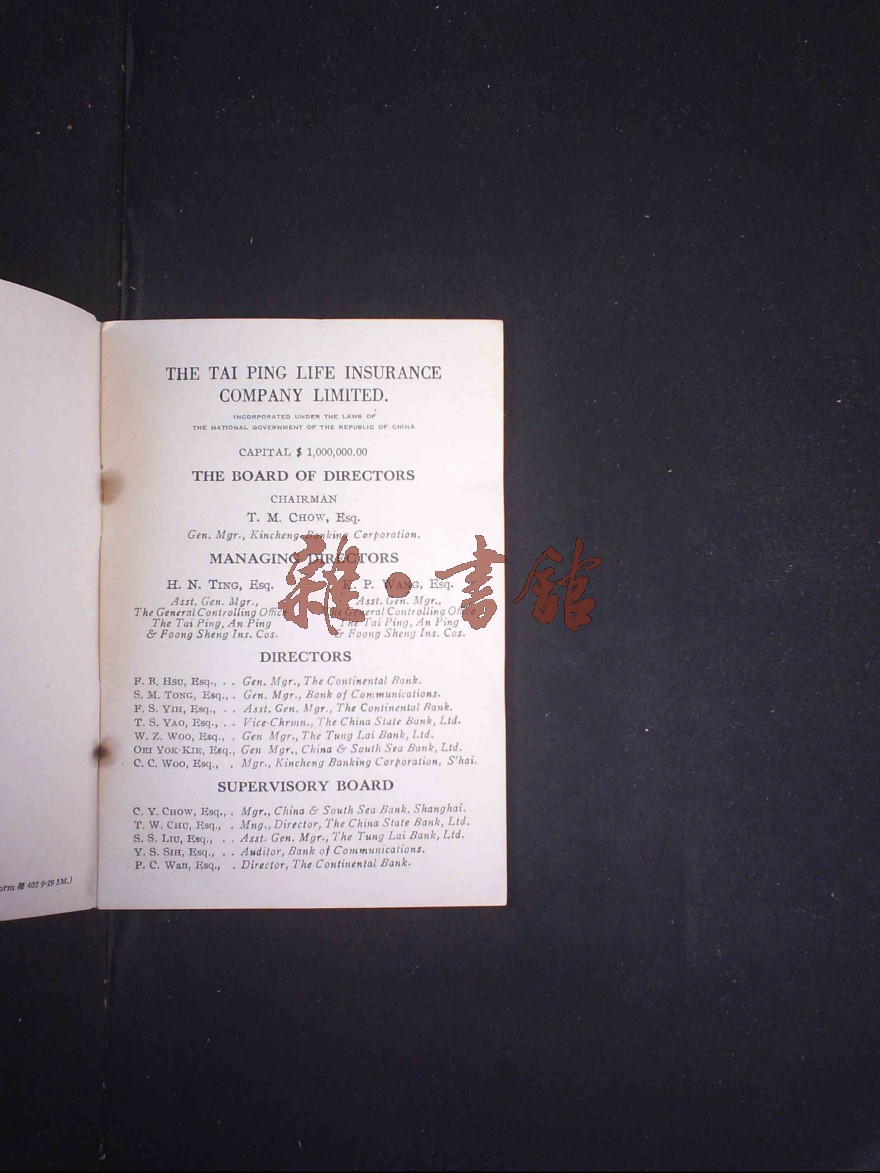 THE TAI PING LIFE INSURANCE
COMPANY LIMITED.
INCORPORATED UNDER THE LAWS OF
THE NATIONAL GOVERNMENT OF THE REPUBLIC OF CHINA
CAPITAL $ 1,000,000.00
THE BOARD OF DIRECTORS
CHAIRMAN
T. M. CHOW, Esq.
Gen. Mgr., Kincheng Banking Corporation.
MANAGING DIRECTORS
H. N. TING, Esq.
Asst. Gen. Mgr.,
The General Controlling Office
The Tai Ping, An Ping
& Foong Sheng Ins. Cos.
K. P. WANG, Esq.
Asst. Gen. Mgr.,
The General Controlling Office
The Tai Ping, An Ping
& Foong Sheng Ins. Cos.
DIRECTORS
F. R. HSU, Esq., . . Gen. Mgr., The Continental Bank.
S. M. TONG, Esq., . Gen. Mgr., Bank of Communications.
F. S. YIH, Esq., . . Asst. Gen. Mgr., The Continental Bank.
T. S. YAO, Esq., . . Vice-Chrmn., The China State Bank, Ltd.
W. Z. WOO, Esq., . Gen Mgr., The Tung Lai Bank, Ltd.
OEI YOK-KIE, Esq., Gen Mgr., China & South Sea Bank, Ltd.
C. C. WOO, Esq., . Mgr., Kincheng Banking Corporation, S'hai.
SUPERVISORY BOARD
C. Y. CHOW, Esq., . Mgr., China & South Sea Bank, Shanghai.
T. W. CHU, Esq., . Mng., Director, The China State Bank, Ltd.
S. S. LIU, Esq., . . Asst. Gen. Mgr., The Tung Lai Bank, Ltd.
Y. S. SIH, Esq., . . Auditor, Bank of Communications.
P. C. WAH, Esq., . Director, The Continental Bank.
402 9-29 5M.)
雜·書館